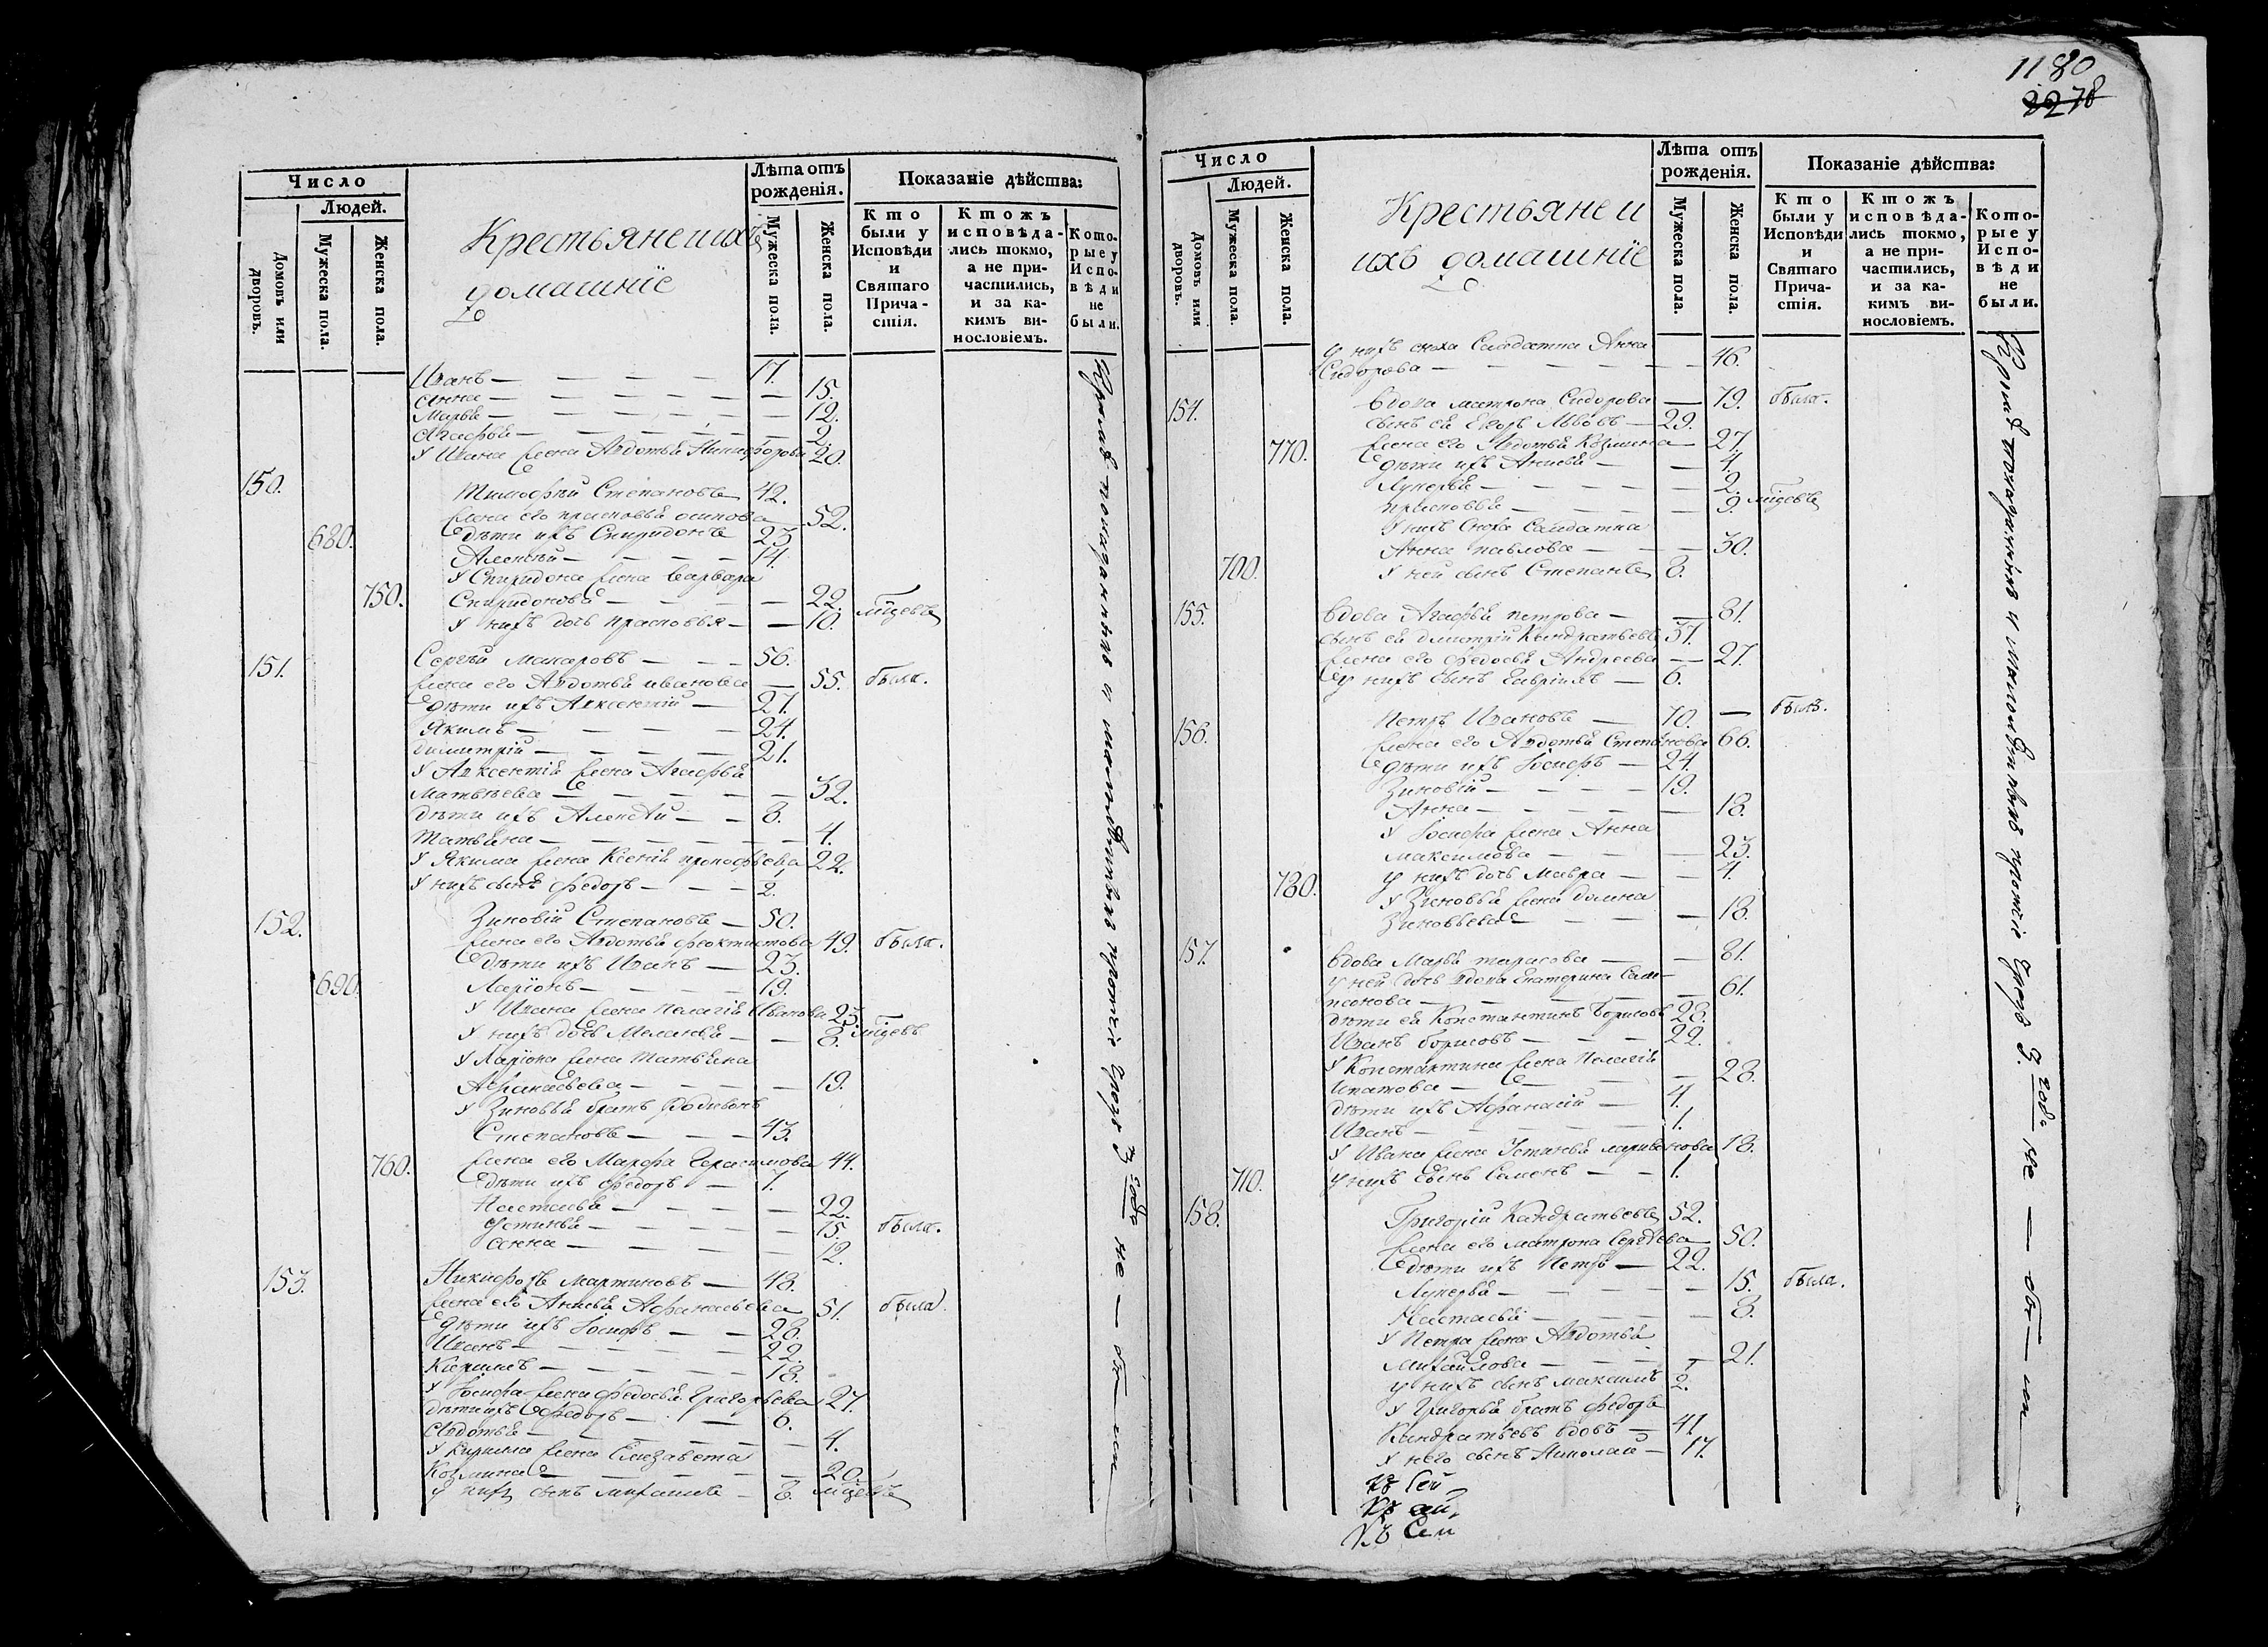 Число
Людей.
Домовъ или дворовъ.
Мужеска пола.
Женска пола.
Крестьяне и ихъ
домашніе
Лѣта отъ рожденія.
Мужеска пола.
Женска пола.
Показаніе дѣйства:
Кто были у Исповѣди и Святаго Причастія.
Ктожъ исповѣдались токмо, а не причастились, и за какимъ винословіемъ.
Которые у Исповѣди не были.
Иванъ — 17.
Анна — 15.
Марья — 12.
Агафья — 2.
У Ивана жена Авдотья Никифорова 20.
150. Тимофѣй Степановъ 42.
жена его Прасковья Осипова 52.
680. дѣти ихъ Спиридонъ 23
Алексѣй — 14.
У Спиридона жена Варвара
750. Спиридонова — 22.
У нихъ дочь Прасковья — 10.
151. Сергѣй Макаровъ — 56.
жена его Авдотья Иванова — 55. была.
дѣти ихъ Авксентій — 27.
Якимъ — 24.
Димитрій — 21.
У Авксентія жена Агафья
Матвѣева — 32.
дѣти ихъ Алексѣй — 8.
Татьяна — 4.
У Якима жена Ксенія Прокофьева 22.
У нихъ сынъ Федоръ — 2.
152. Зиновій Степановъ — 50.
жена его Авдотья Феоктистова 49. была.
дѣти ихъ Иванъ — 23.
690. Ларіонъ — 19.
У Ивана жена Пелагія Иванова 23.
У нихъ дочь Меланья — 8.
У Ларіона жена Татьяна
Афанасьева — 19.
У Зиновья братъ Родивонъ
Степановъ — 43.
760. жена его Марфа Герасимова 44.
дѣти ихъ Федоръ — 7.
Настасья — 22.
Устинья — 15. была.
Анна — 12.
153. Никифоръ Мартиновъ — 48.
жена его Анисья Афанасьева 51. была.
дѣти ихъ Іосифъ — 28.
Иванъ — 22.
Кирилъ — 18.
У Іосифа жена Федосья Григорьева 27.
дѣти ихъ Федоръ — 6.
Авдотья — 4.
У Кирила жена Елизавета
Козмина — 20.
У нихъ сынъ
1180
2278
Число
Людей.
Домовъ или дворовъ.
Мужеска пола.
Женска пола.
Крестьяне и
ихъ домашніе
Лѣта отъ рожденія.
Мужеска пола.
Женска пола.
Показаніе дѣйства:
Кто были у Исповѣди и Святаго Причастія.
Ктожъ исповѣдались токмо, а не причастились, и за какимъ винословіемъ.
Которые у Исповѣди не были.
У нихъ сноха Салдатка Анна
Сидорова — 46.
154. Вдова Матрона Сидорова — 79. была.
сынъ ея Егоръ Львовъ — 29.
770. жена его Авдотья Козмина — 27.
дѣти ихъ Анисья — 4.
Лукерья — 2.
Прасковья — 9.
У нихъ сноха Салдатка
Анна Павлова — 30.
700. У ней сынъ Степанъ 8.
155. Вдова Агафья Петрова — 81.
сынъ ея Дмитрій Кандратьевъ 37.
жена его Федосья Андреева — 27.
У нихъ сынъ Гавріилъ — 6.
156. Петръ Ивановъ — 70. — былъ.
жена его Авдотья Степанова 66.
дѣти ихъ Іосифъ — 24.
Зиновій — 19.
Анна — 18.
У Іосифа жена Анна
Максимова — 23.
780. У нихъ дочь Мавра — 4.
У Зиновья жена Домна
Зиновьева — 18.
157. Вдова Марья Тарасова — 81.
У ней дочь вдова Екатерина Сам-
псонова — 61.
дѣти ея Константинъ Борисовъ 28.
Иванъ Борисовъ — 22.
У Константина жена Пелагія
Ипатова — 28.
дѣти ихъ Афанасій — 4.
Иванъ — 1.
У Ивана жена Устинья Ларивонова 18.
710. У нихъ сынъ Семенъ — 1.
158. Григорій Кандратьевъ 52.
жена его Матрона Сергѣева 50.
дѣти ихъ Петръ — 22.
Лукерья — 15. была.
Настасья — 8.
У Петра жена Авдотья
Михайлова — 21.
У нихъ сынъ Максимъ 2.
У Григорья братъ Федоръ
Кандратьевъ вдовъ — 41
У него сынъ Николай — 17.